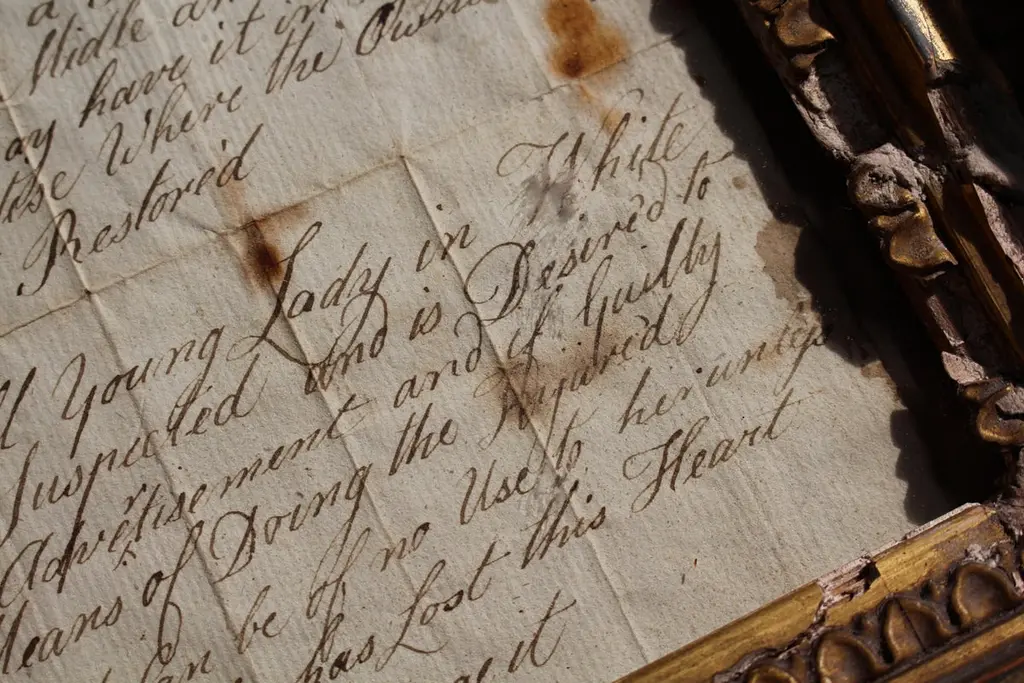 a
Midle an
ay have it in
tise Where the Owne
Restored
Young Lady in White
Suspected and is Desired to
Advertisement and if Guilty
Means of Doing the Injured
Can be of no Use to her unless
has Lost this Heart
it